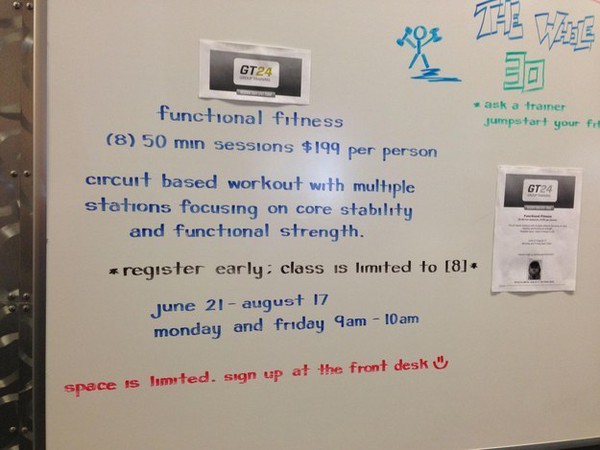 THE WHOLE
30
* ask a trainer
jumpstart your fit
GT24
GROUP TRAINING
functional fitness
(8) 50 min sessions $199 per person
circuit based workout with multiple
stations focusing on core stability
and functional strength.
*register early; class is limited to [8]*
june 21 - august 17
monday and friday 9am - 10am
space is limited. sign up at the front desk
GT24
Functional Fitness